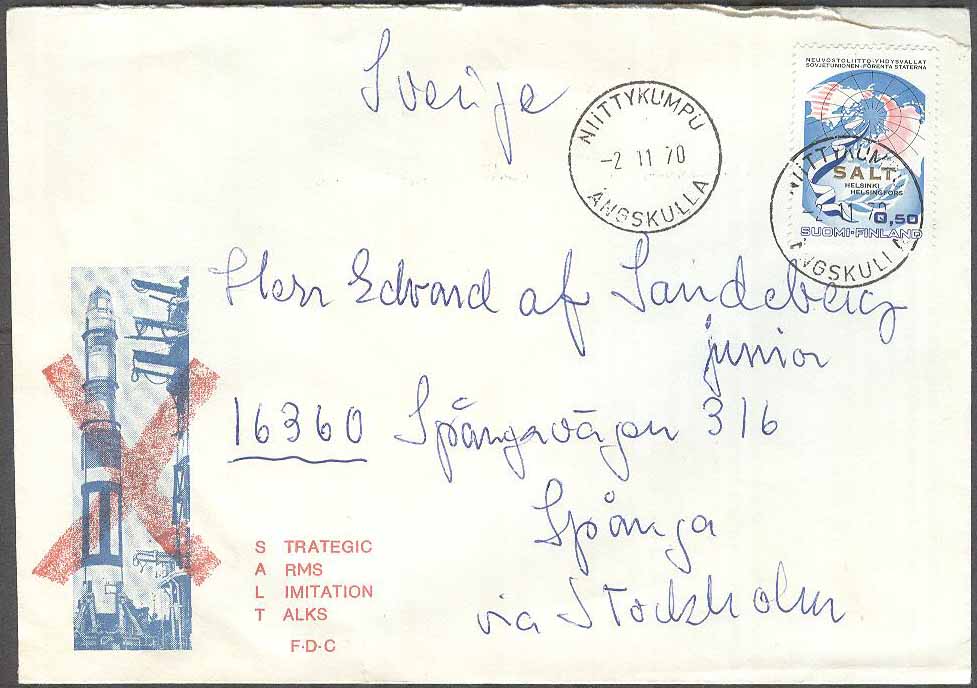 Sverige
NIITTYKUMPU
-2 11 70
ÄNGSKULLA
NEUVOSTOLIITTO-YHDYSVALLAT
SOVJETUNIONEN-FÖRENTA STATERNA
SALT
HELSINKI
HELSINGFORS
0,50
SUOMI-FINLAND
NIITTYKUM
2 11 70
ÄNGSKULLA
Herr Edvard af Sandeberg
junior
16360 Spångavägen 316
Spånga
via Stockholm
S TRATEGIC
A RMS
L IMITATION
T ALKS
F·D·C